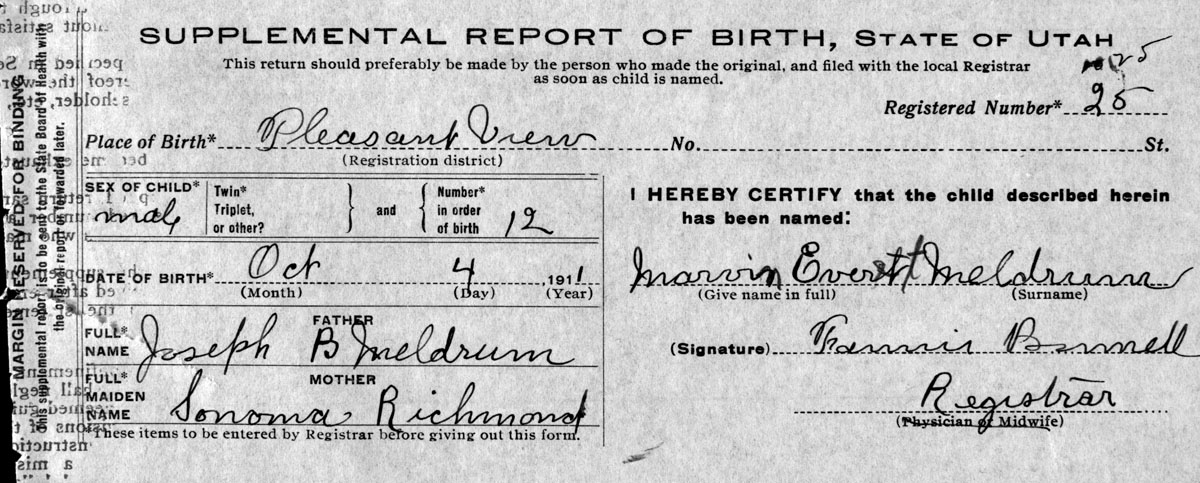 SUPPLEMENTAL REPORT OF BIRTH, STATE OF UTAH
This return should preferably be made by the person who made the original, and filed with the local Registrar
as soon as child is named.
25
Registered Number* 25
Place of Birth* Pleasant View No. St.
(Registration district)
SEX OF CHILD* male
Twin* Triplet, or other? } and { Number* in order of birth 12
DATE OF BIRTH* Oct 4, 1911
(Month) (Day) (Year)
FATHER
FULL* NAME Joseph B Meldrum
MOTHER
FULL* MAIDEN NAME Sonoma Richmond
*These items to be entered by Registrar before giving out this form.
I HEREBY CERTIFY that the child described herein
has been named:
Marvin Everett Meldrum
(Give name in full) (Surname)
(Signature) Fannie
Registrar
(Physician or Midwife)
MARGIN RESERVED FOR BINDING
This supplemental report is to be sent to the State Board of Health with
the original report or forwarded later.